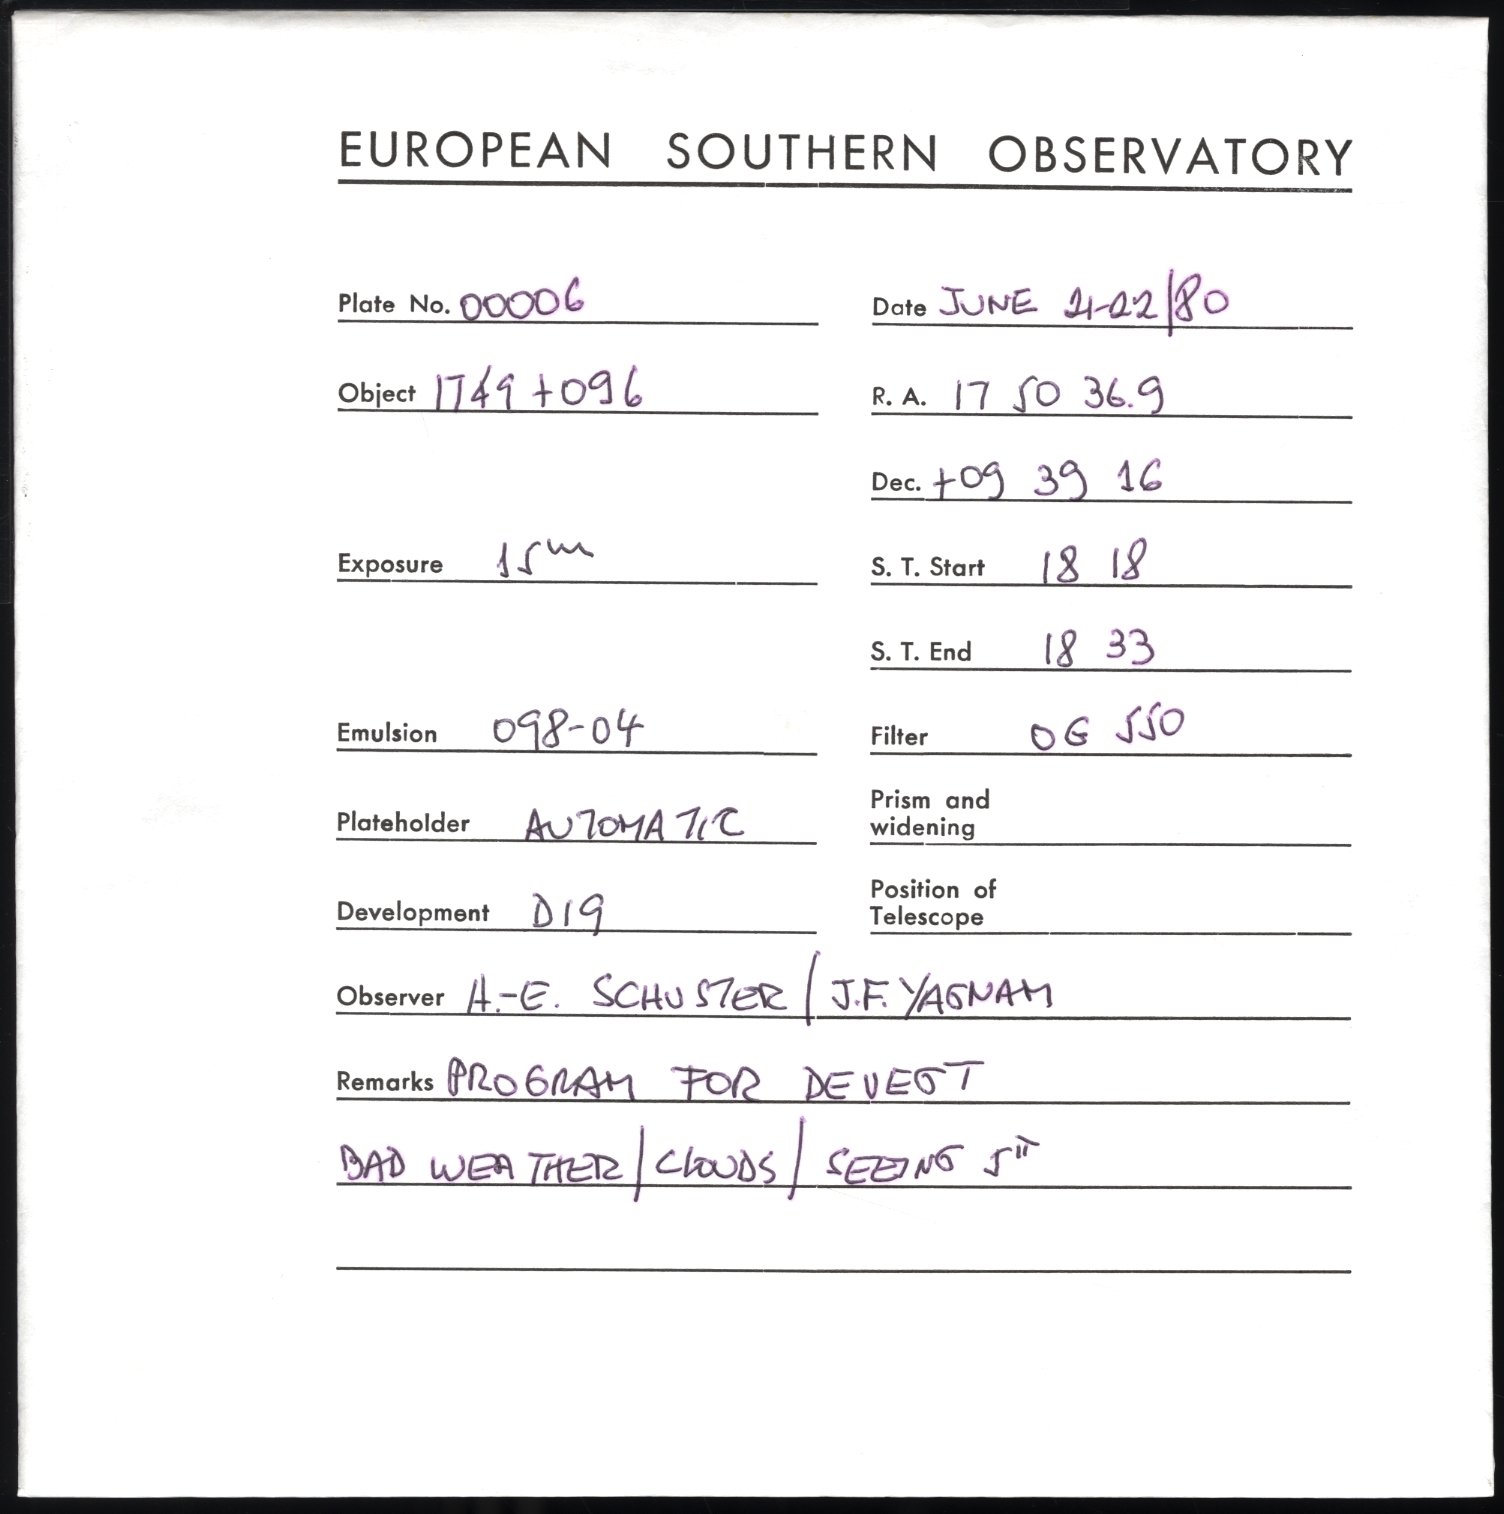 EUROPEAN SOUTHERN OBSERVATORY
Plate No. 00006 Date JUNE 21-22/80
Object 1749+096 R. A. 17 50 36.9
Dec. +09 39 16
Exposure 15m S. T. Start 18 18
S. T. End 18 33
Emulsion 098-04 Filter OG 550
Plateholder AUTOMATIC Prism and
widening
Development D19 Position of
Telescope
Observer H.-E. SCHUSTER / J.F. YAGNAM
Remarks PROGRAM FOR DEVEGT
BAD WEATHER / CLOUDS / SEEING 5"